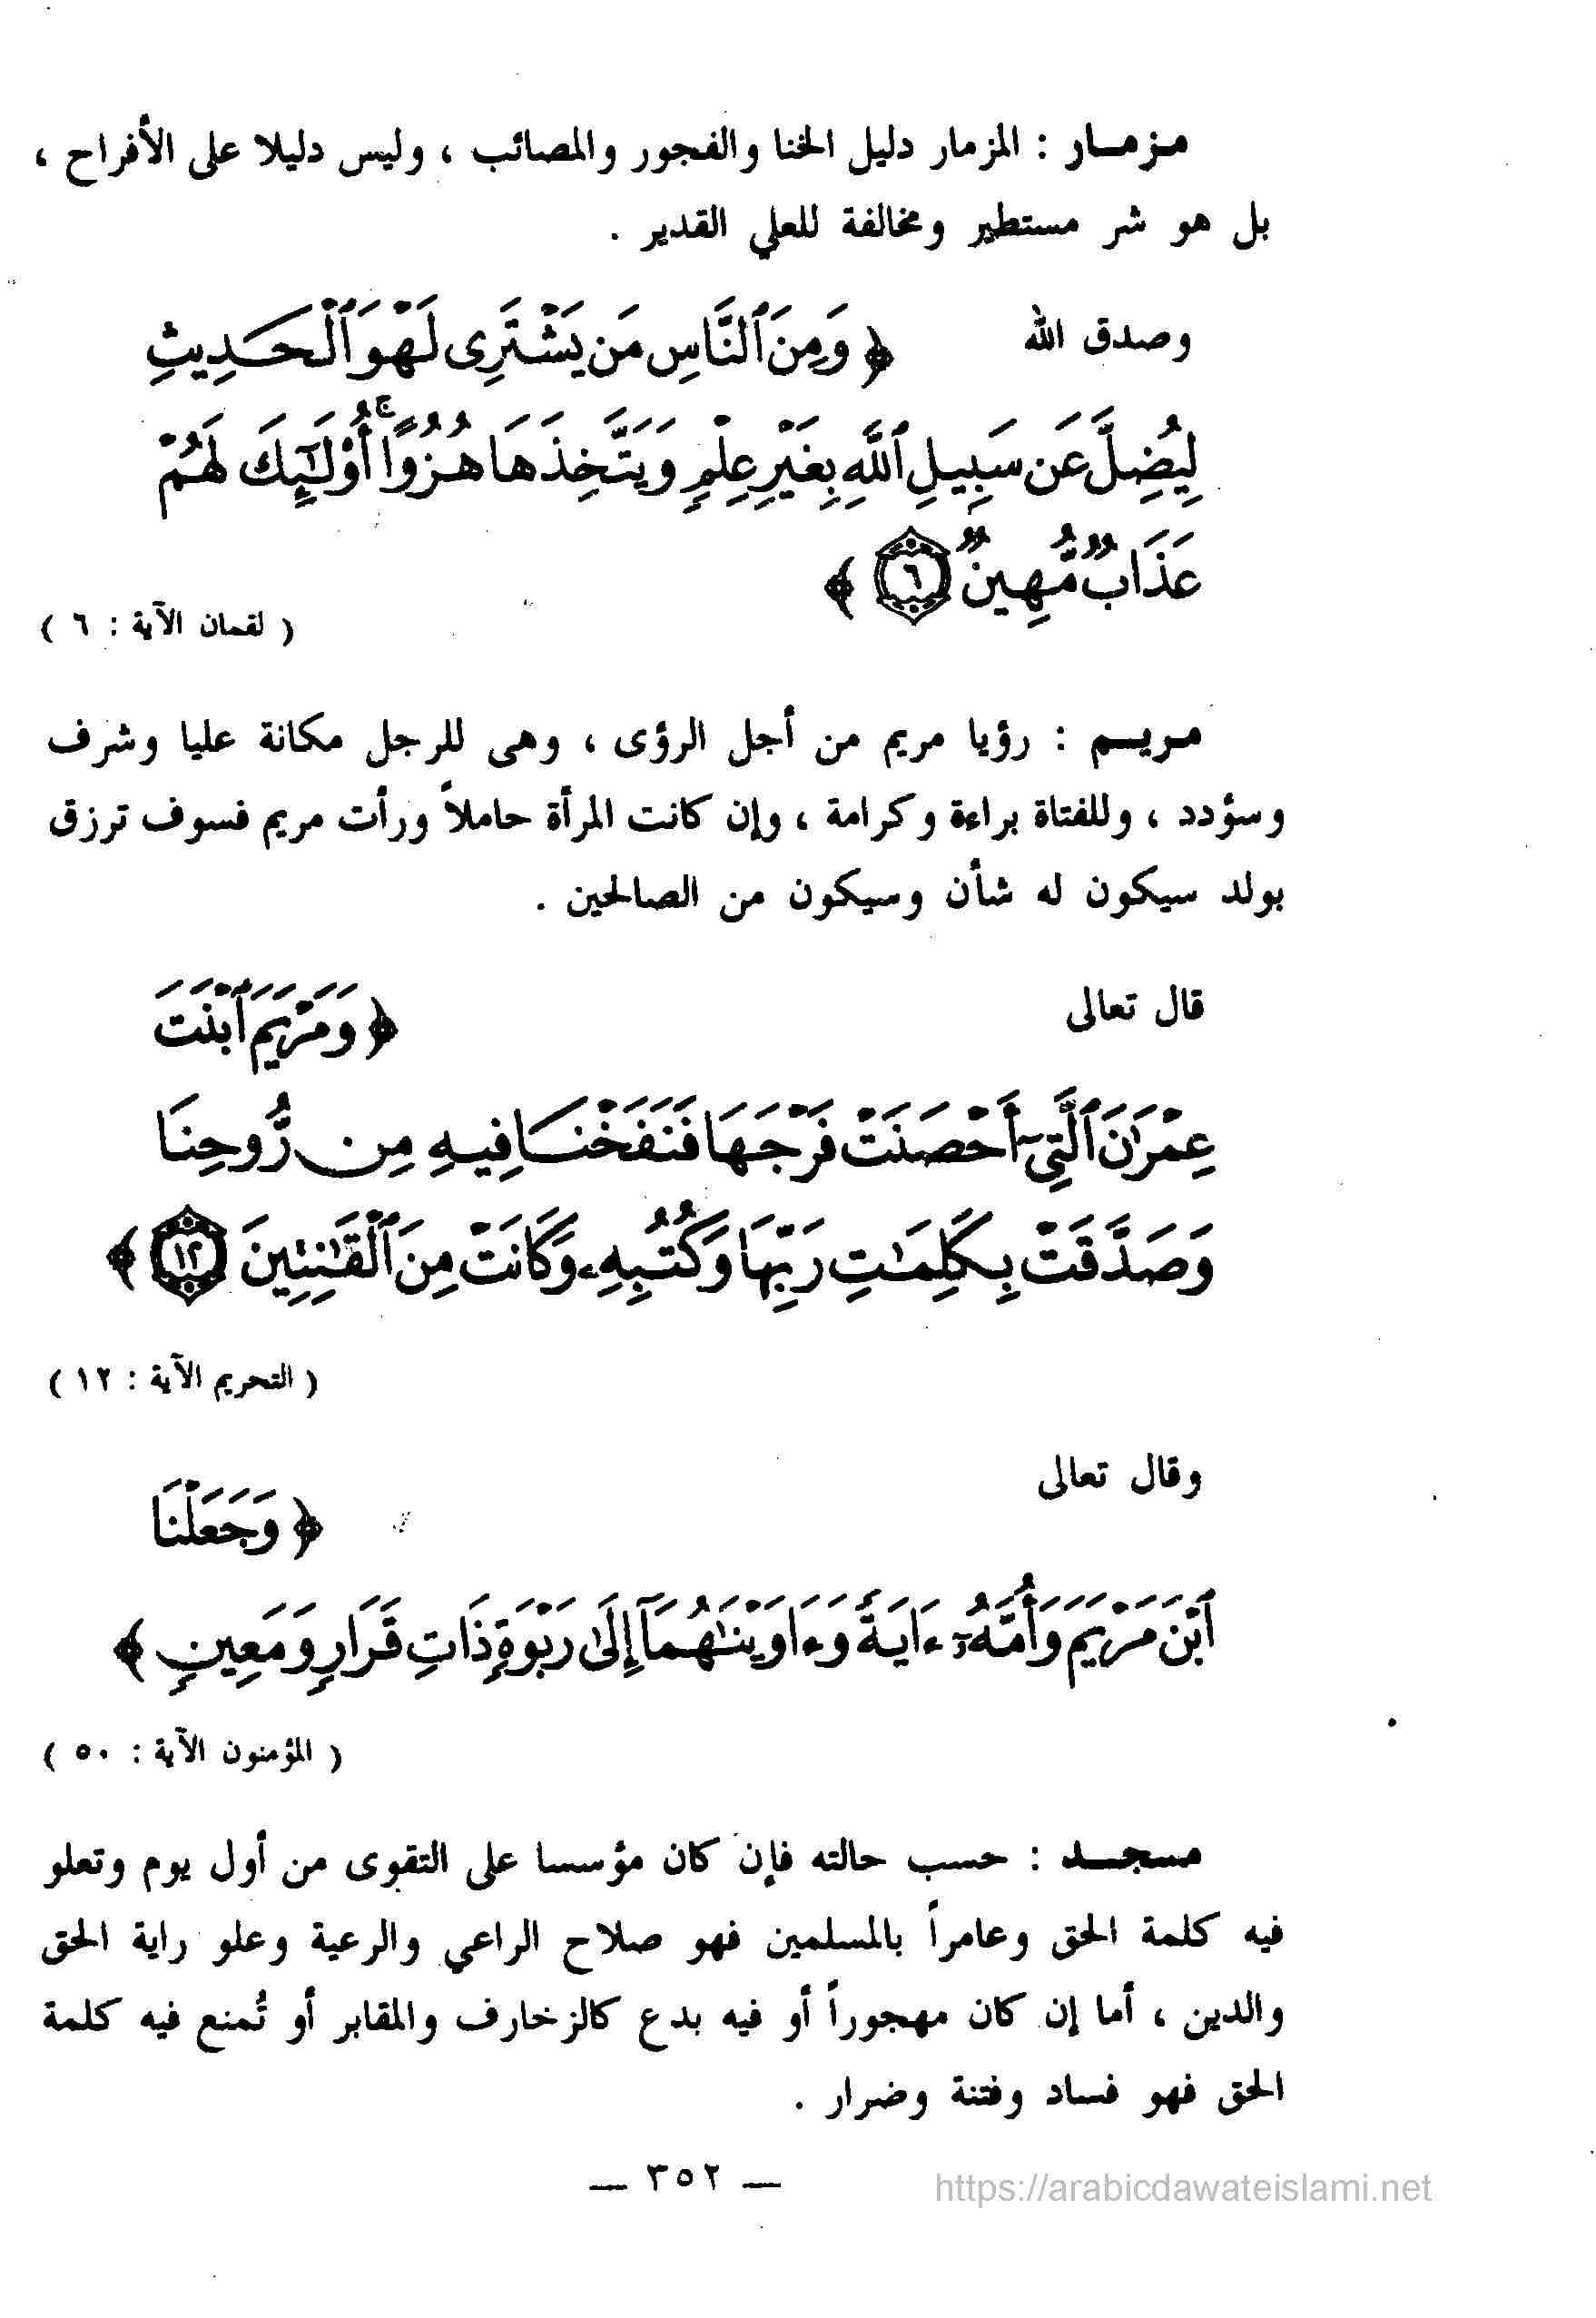 مـزمــار : المزمار دليل الخنا والفجور والمصائب ، وليس دليلا على الأفراح ،
بل هو شر مستطير ومخالفة للعلي القدير .
وصدق الله ﴿ وَمِنَ ٱلنَّاسِ مَن يَشْتَرِى لَهْوَ ٱلْحَدِيثِ
لِيُضِلَّ عَن سَبِيلِ ٱللَّهِ بِغَيْرِ عِلْمٍ وَيَتَّخِذَهَا هُزُوًا ۚ أُوْلَـٰٓئِكَ لَهُمْ
عَذَابٌ مُّهِينٌ ٦ ﴾
( لقمان الآية : ٦ )
مـريــم : رؤيا مريم من أجل الرؤى ، وهى للرجل مكانة عليا وشرف
وسؤدد ، وللفتاة براءة وكرامة ، وإن كانت المرأة حاملاً ورأت مريم فسوف ترزق
بولد سيكون له شأن وسيكون من الصالحين .
قال تعالى ﴿ وَمَرْيَمَ ٱبْنَتَ
عِمْرَٰنَ ٱلَّتِىٓ أَحْصَنَتْ فَرْجَهَا فَنَفَخْنَا فِيهِ مِن رُّوحِنَا
وَصَدَّقَتْ بِكَلِمَـٰتِ رَبِّهَا وَكُتُبِهِۦ وَكَانَتْ مِنَ ٱلْقَـٰنِتِينَ ١٢ ﴾
( التحريم الآية : ١٢ )
وقال تعالى
﴿ وَجَعَلْنَا
ٱبْنَ مَرْيَمَ وَأُمَّهُۥٓ ءَايَةً وَءَاوَيْنَـٰهُمَآ إِلَىٰ رَبْوَةٍ ذَاتِ قَرَارٍ وَمَعِينٍ ﴾
( المؤمنون الآية : ٥٠ )
مسجــد : حسب حالته فإن كان مؤسسا على التقوى من أول يوم وتعلو
فيه كلمة الحق وعامراً بالمسلمين فهو صلاح الراعي والرعية وعلو راية الحق
والدين ، أما إن كان مهجوراً أو فيه بدع كالزخارف والمقابر أو تُمنع فيه كلمة
الحق فهو فساد وفتنة وضرار .
— ٣٥٢ —
https://arabicdawateislami.net